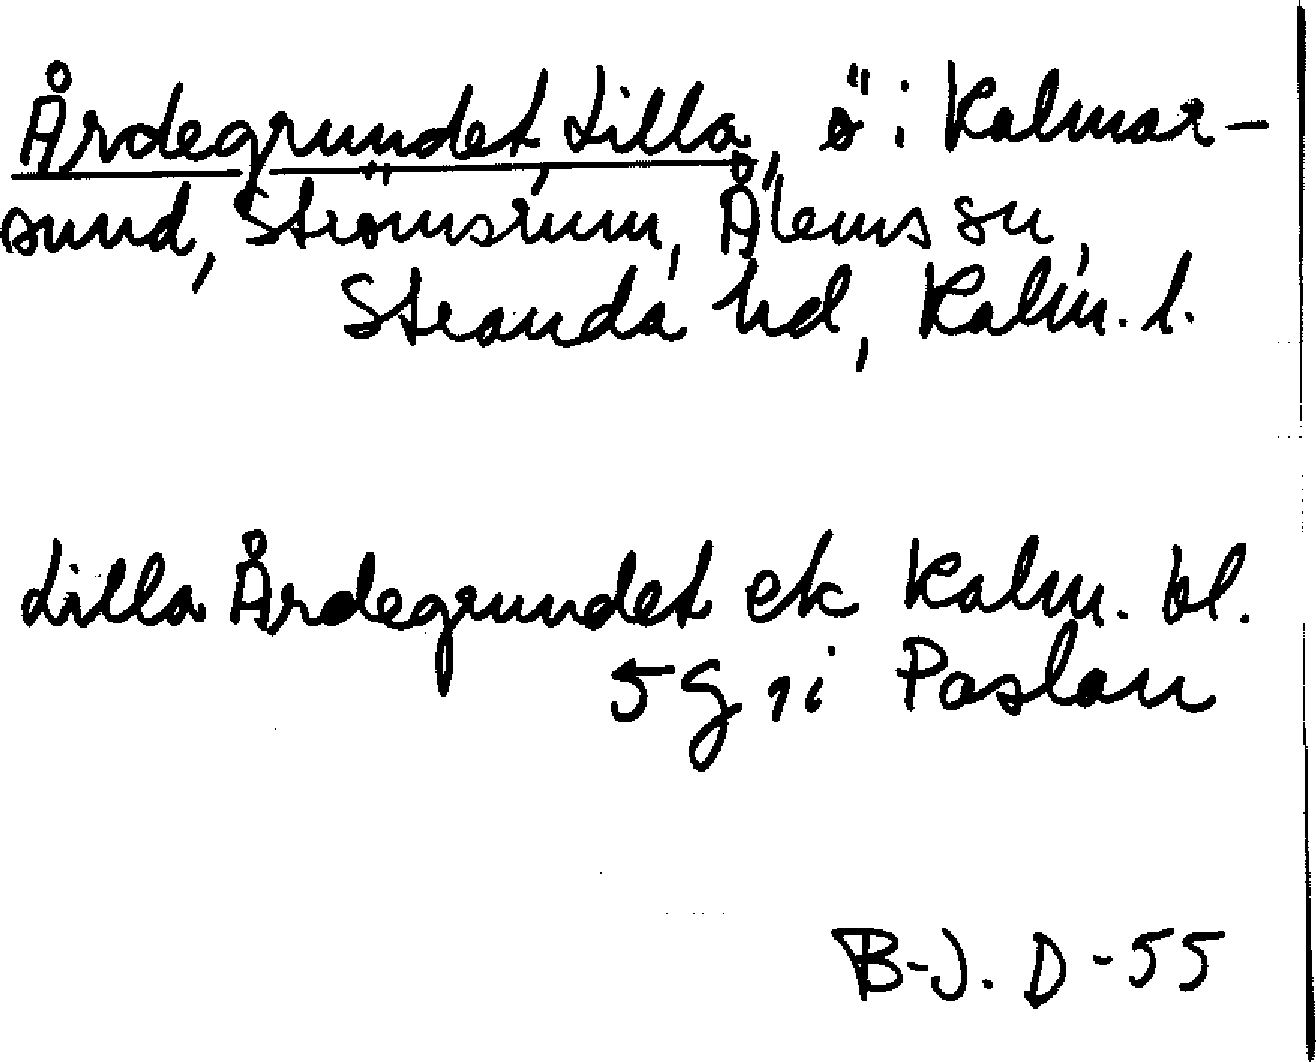 Årdegrundet, Lilla, ö i Kalmar-
sund, Strömsrum, Ålems sn,
Stranda hd, Kalm. l.
Lilla Årdegrundet ek Kalm. bl.
5 g, i Paslau
B-J. D -55